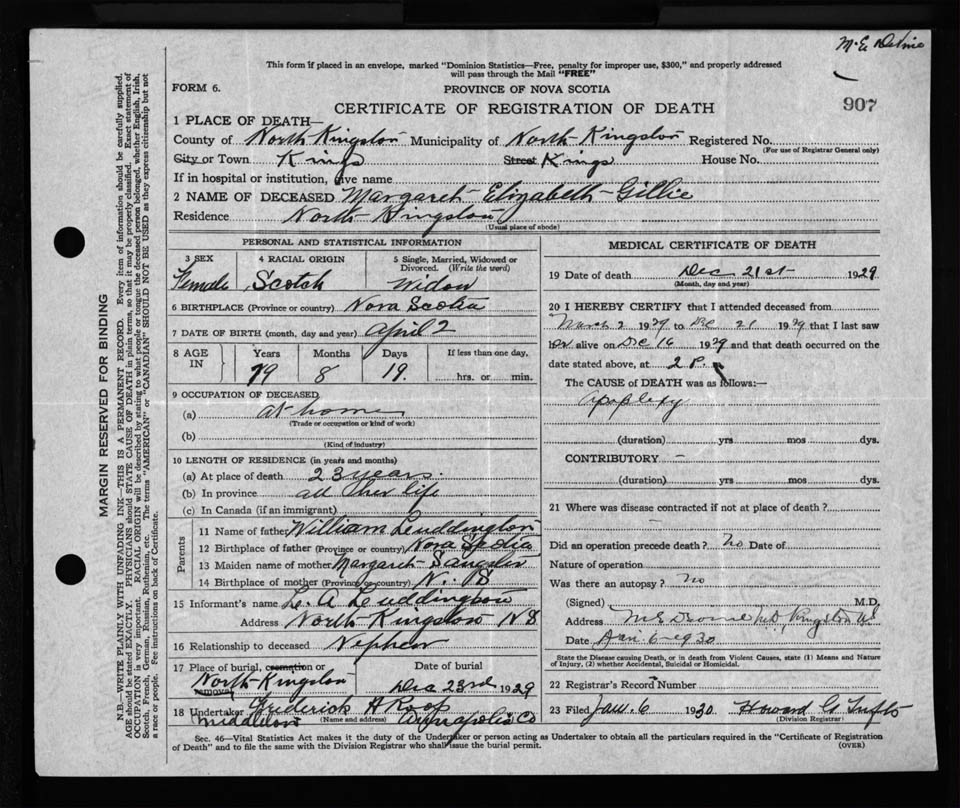 M.E. Devine
This form if placed in an envelope, marked "Dominion Statistics—Free, penalty for improper use, $300," and properly addressed
will pass through the Mail "FREE"
FORM 6.
PROVINCE OF NOVA SCOTIA
907
CERTIFICATE OF REGISTRATION OF DEATH
1 PLACE OF DEATH—
County of North Kingston Municipality of North Kingston Registered No.
(For use of Registrar General only)
City or Town Kings Street Kings House No.
If in hospital or institution, give name
2 NAME OF DECEASED Margaret Elizabeth Gillie
Residence North Kingston
(Usual place of abode)
PERSONAL AND STATISTICAL INFORMATION
3 SEX 4 RACIAL ORIGIN 5 Single, Married, Widowed or
Divorced. (Write the word)
Female Scotch Widow
6 BIRTHPLACE (Province or country) Nova Scotia
7 DATE OF BIRTH (month, day and year) April 2
8 AGE IN Years Months Days If less than one day,
79 8 19. hrs. or min.
9 OCCUPATION OF DECEASED
(a) at home
(Trade or occupation or kind of work)
(b)
(Kind of industry)
10 LENGTH OF RESIDENCE (in years and months)
(a) At place of death 23 years.
(b) In province all her life
(c) In Canada (if an immigrant)
Parents
11 Name of father William Luddington
12 Birthplace of father (Province or country) Nova Scotia
13 Maiden name of mother Margaret Sangster
14 Birthplace of mother (Province or country) N. S
15 Informant's name L. A Luddington
Address North Kingston N S
16 Relationship to deceased Nephew
17 Place of burial, cremation or removal Date of burial
North Kingston Dec 23rd 1929
18 Undertaker Frederick H Roop
Middleton (Name and address) Annapolis Co
MEDICAL CERTIFICATE OF DEATH
19 Date of death Dec 21st 1929
(Month, day and year)
20 I HEREBY CERTIFY that I attended deceased from
March 2 1929 to Dec 21 1929 that I last saw
er alive on Dec 16 1929 and that death occurred on the
date stated above, at 2 P. m
The CAUSE of DEATH was as follows:—
Apoplexy
(duration) yrs mos dys.
CONTRIBUTORY —
(duration) yrs mos dys.
21 Where was disease contracted if not at place of death?
Did an operation precede death? No Date of
Nature of operation
Was there an autopsy? No
(Signed) M.D.
Address M E Devine MD, Kingston NS
Date Jan 6 - 1930
State the Disease causing Death, or in death from Violent Causes, state (1) Means and Nature
of Injury, (2) whether Accidental, Suicidal or Homicidal.
22 Registrar's Record Number
23 Filed Jan. 6 1930 Howard G Tufts
(Division Registrar)
Sec. 46—Vital Statistics Act makes it the duty of the Undertaker or person acting as Undertaker to obtain all the particulars required in the "Certificate of Registration
of Death" and to file the same with the Division Registrar who shall issue the burial permit.
(OVER)
MARGIN RESERVED FOR BINDING
N.B.—WRITE PLAINLY WITH UNFADING INK—THIS IS A PERMANENT RECORD. Every item of information should be carefully supplied.
AGE should be stated EXACTLY. PHYSICIANS should STATE CAUSE OF DEATH in plain terms, so that it may be properly classified. Exact statement of
OCCUPATION is very important. RACIAL ORIGIN will be described by stating to what people or tongue the deceased person belonged, whether English, Irish,
Scotch, French, German, Russian, Ruthenian, etc. The terms "AMERICAN" or "CANADIAN" SHOULD NOT BE USED as they express citizenship but not
a race or people. See instructions on back of Certificate.